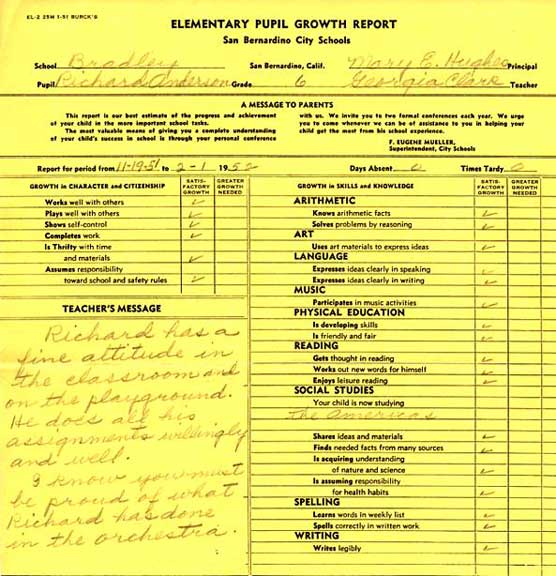 EL-2 25M 1-51 BURCK'S
ELEMENTARY PUPIL GROWTH REPORT
San Bernardino City Schools
School Bradley San Bernardino, Calif. Mary E. Hughes Principal
Pupil Richard Anderson Grade 6 Georgia Clark Teacher
A MESSAGE TO PARENTS
This report is our best estimate of the progress and achievement
of your child in the more important school tasks.
The most valuable means of giving you a complete understanding
of your child's success in school is through your personal conference
with us. We invite you to two formal conferences each year. We urge
you to come whenever we can be of assistance to you in helping your
child get the most from his school experience.
F. EUGENE MUELLER,
Superintendent, City Schools
Report for period from 11-19-51 to 2-1 1952 Days Absent 0 Times Tardy 0
GROWTH in CHARACTER and CITIZENSHIP
SATIS-
FACTORY
GROWTH
GREATER
GROWTH
NEEDED
Works well with others ✓
Plays well with others ✓
Shows self-control ✓
Completes work ✓
Is Thrifty with time
and materials ✓
Assumes responsibility
toward school and safety rules ✓
TEACHER'S MESSAGE
Richard has a
fine attitude in
the classroom and
on the playground.
He does all his
assignments willingly
and well.
I know you must
be proud of what
Richard has done
in the orchestra.
GROWTH in SKILLS and KNOWLEDGE
SATIS-
FACTORY
GROWTH
GREATER
GROWTH
NEEDED
ARITHMETIC
Knows arithmetic facts ✓
Solves problems by reasoning ✓
ART
Uses art materials to express ideas ✓
LANGUAGE
Expresses ideas clearly in speaking ✓
Expresses ideas clearly in writing ✓
MUSIC
Participates in music activities ✓
PHYSICAL EDUCATION
Is developing skills ✓
Is friendly and fair ✓
READING
Gets thought in reading ✓
Works out new words for himself ✓
Enjoys leisure reading ✓
SOCIAL STUDIES
Your child is now studying
the Americas
Shares ideas and materials ✓
Finds needed facts from many sources ✓
Is acquiring understanding
of nature and science ✓
Is assuming responsibility
for health habits ✓
SPELLING
Learns words in weekly list ✓
Spells correctly in written work ✓
WRITING
Writes legibly ✓